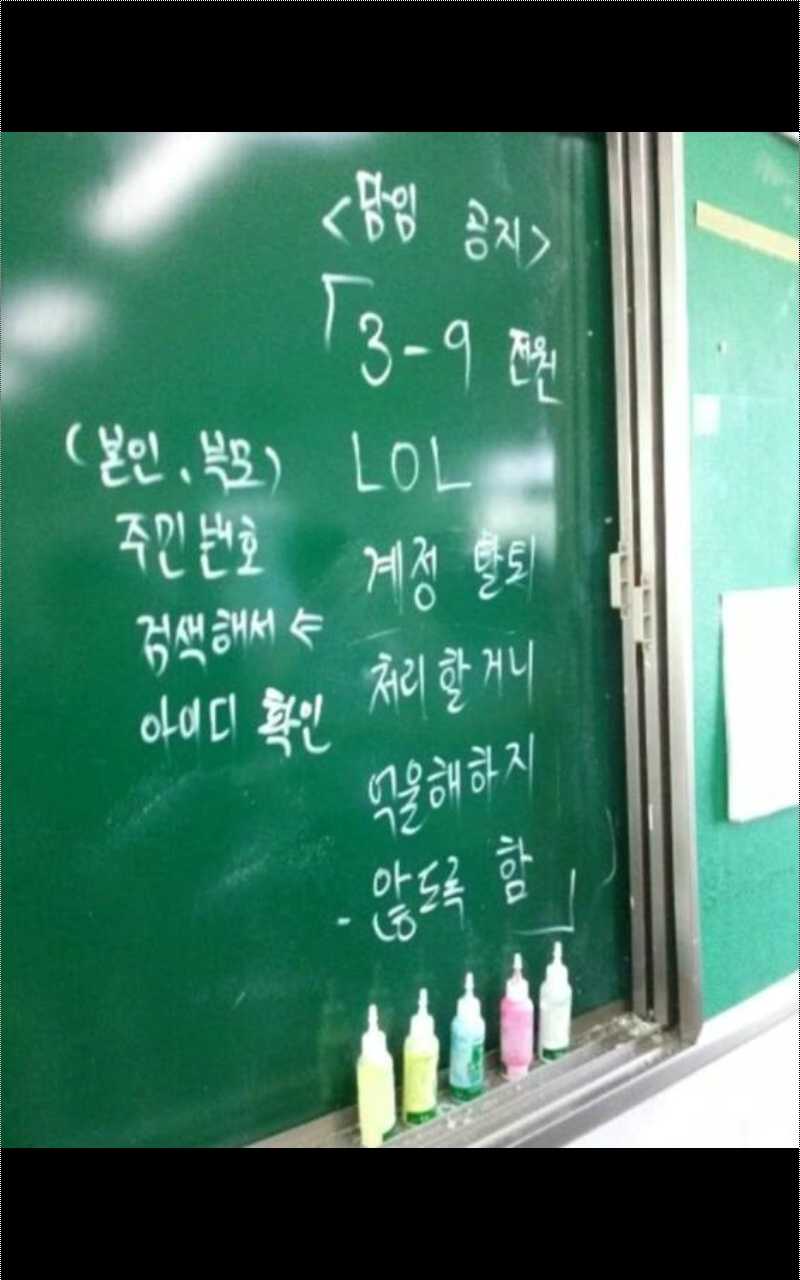 <담임 공지>
「3-9 전원
LOL
계정 탈퇴
처리할거니
억울해하지
않도록 함」
(본인、부모)
주민번호
검색해서 ⇐
아이디 확인